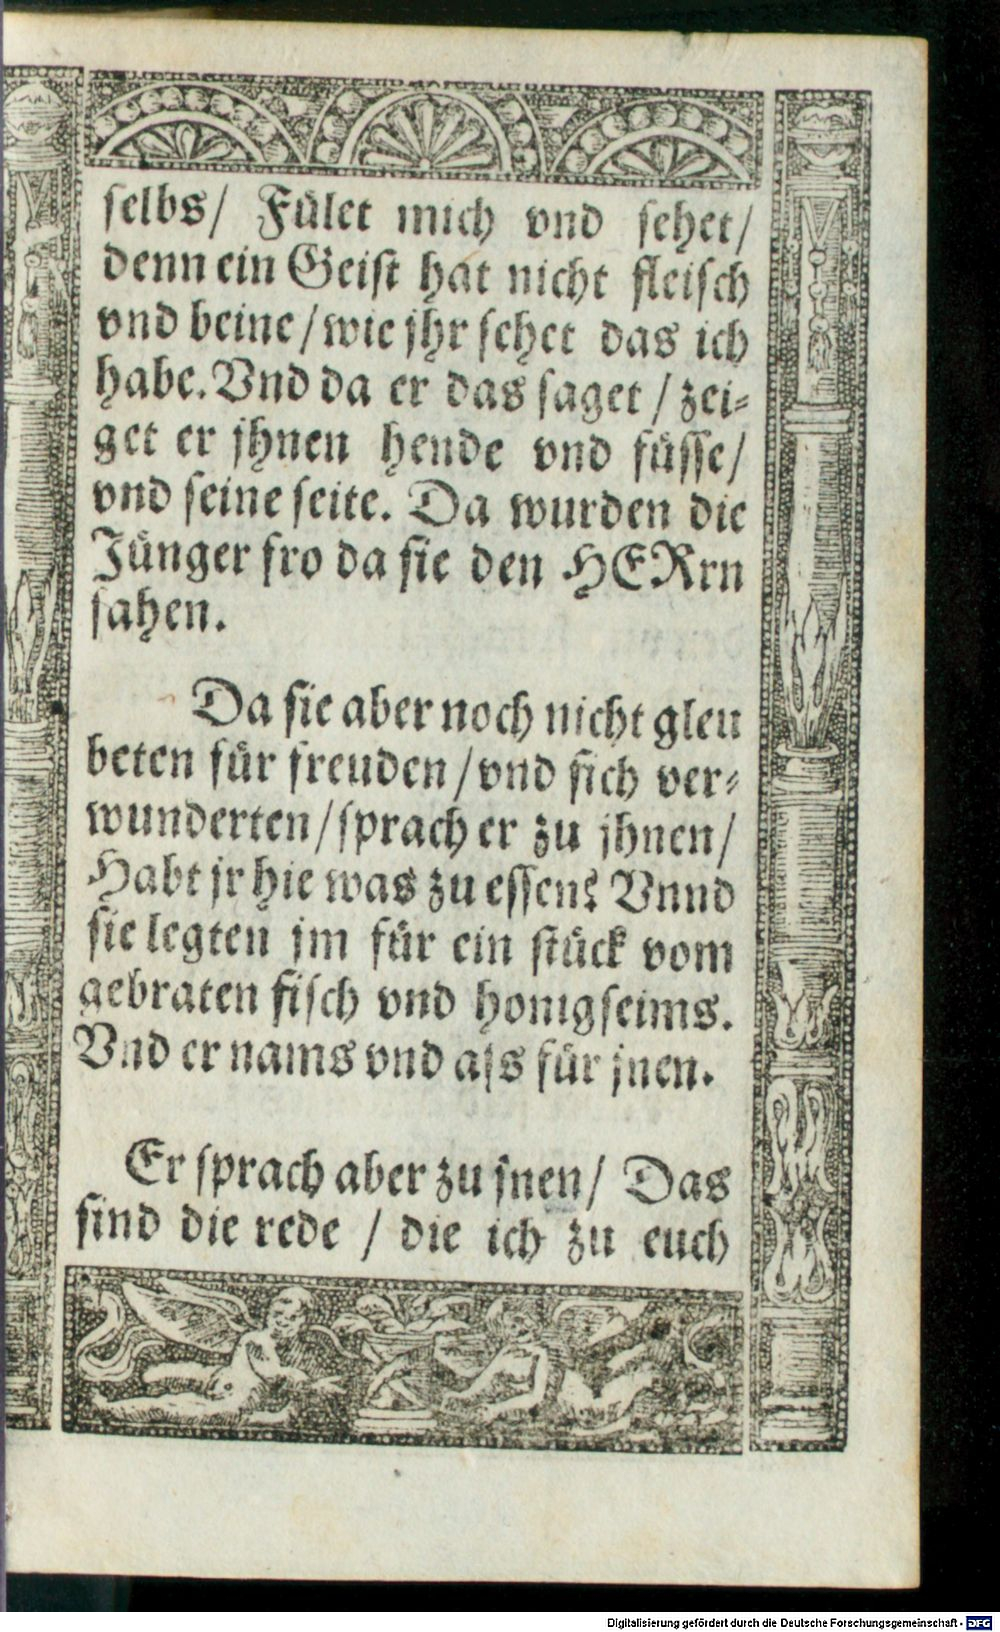 selbs/ Fület mich vnd sehet/
denn ein Geist hat nicht fleisch
vnd beine/wie jhr sehet das ich
habe. Vnd da er das saget / zei⸗
get er jhnen hende vnd füsse/
vnd seine seite. Da wurden die
Jünger fro da sie den HERrn
sahen.
Da sie aber noch nicht gleu
beten für freuden/vnd sich ver⸗
wunderten/sprach er zu jhnen/
Habt jr hie was zu essen? Vnnd
sie legten jm für ein stück vom
gebraten fisch vnd honigseims.
Vnd er nams vnd ass für jnen.
Er sprach aber zu jnen/ Das
sind die rede / die ich zu euch
Digitalisierung gefördert durch die Deutsche Forschungsgemeinschaft - DFG